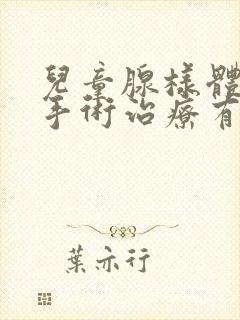 兒童腺樣體
手術治療有
葉亦行